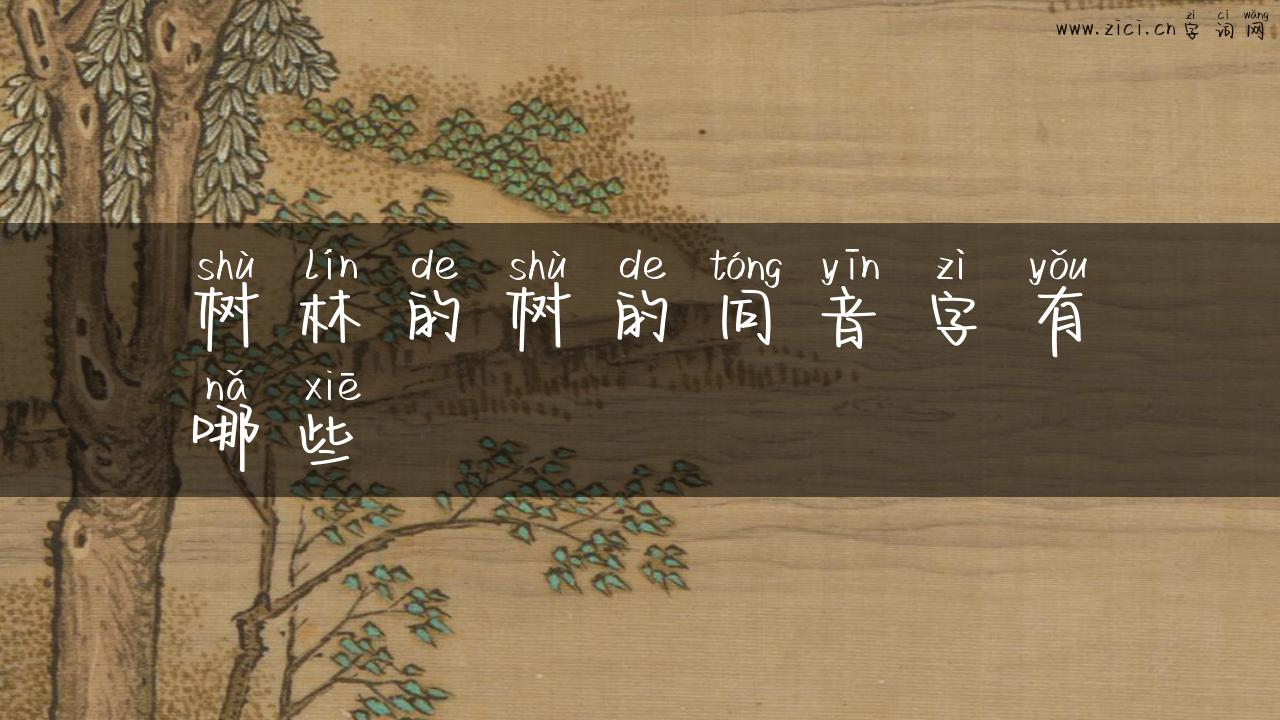 zì cí wǎng
www.zici.cn 字词网
shù lín de shù de tóng yīn zì yǒu
树林的树的同音字有
nǎ xiē
哪些